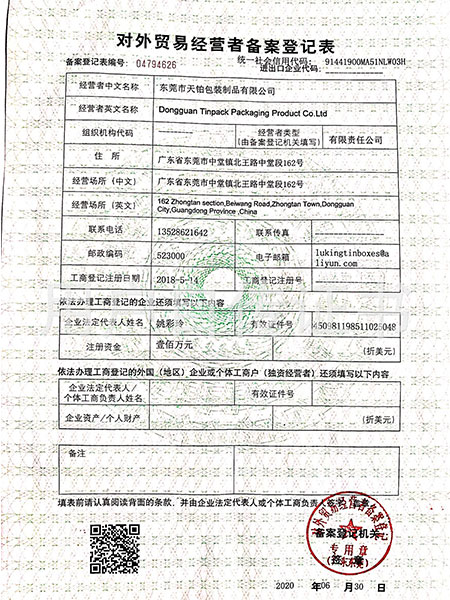 对外贸易经营者备案登记表
统一社会信用代码: 91441900MA51NLW03H
备案登记表编号: 04794626
进出口企业代码:
经营者中文名称 东莞市天铂包装制品有限公司
经营者英文名称 Dongguan Tinpack Packaging Product Co.Ltd
组织机构代码 ---------- 经营者类型 (由备案登记机关填写) 有限责任公司
住 所 广东省东莞市中堂镇北王路中堂段162号
经营场所（中文） 广东省东莞市中堂镇北王路中堂段162号
经营场所（英文） 162 Zhongtan section,Beiwang Road,Zhongtan Town,Dongguan
City,Guangdong Province ,China
联系电话 13528621642 联系传真 --------------
邮政编码 523000 电子邮箱 lukingtinboxes@a
liyun.com
工商登记注册日期 2018-5-14 工商登记注册号 --------------
依法办理工商登记的企业还须填写以下内容
企业法定代表人姓名 姚彩玲 有效证件号 450981198511025048
注册资金 壹佰万元 (折美元)
依法办理工商登记的外国（地区）企业或个体工商户（独资经营者）还须填写以下内容
企业法定代表人/
个体工商负责人姓名 有效证件号
企业资产/个人财产 (折美元)
备注
填表前请认真阅读背面的条款，并由企业法定代表人或个体工商负责人签字、盖章
对外贸易经营者备案登记
备案登记机关
专用章
(签 章)
2020 年 06 月 30 日